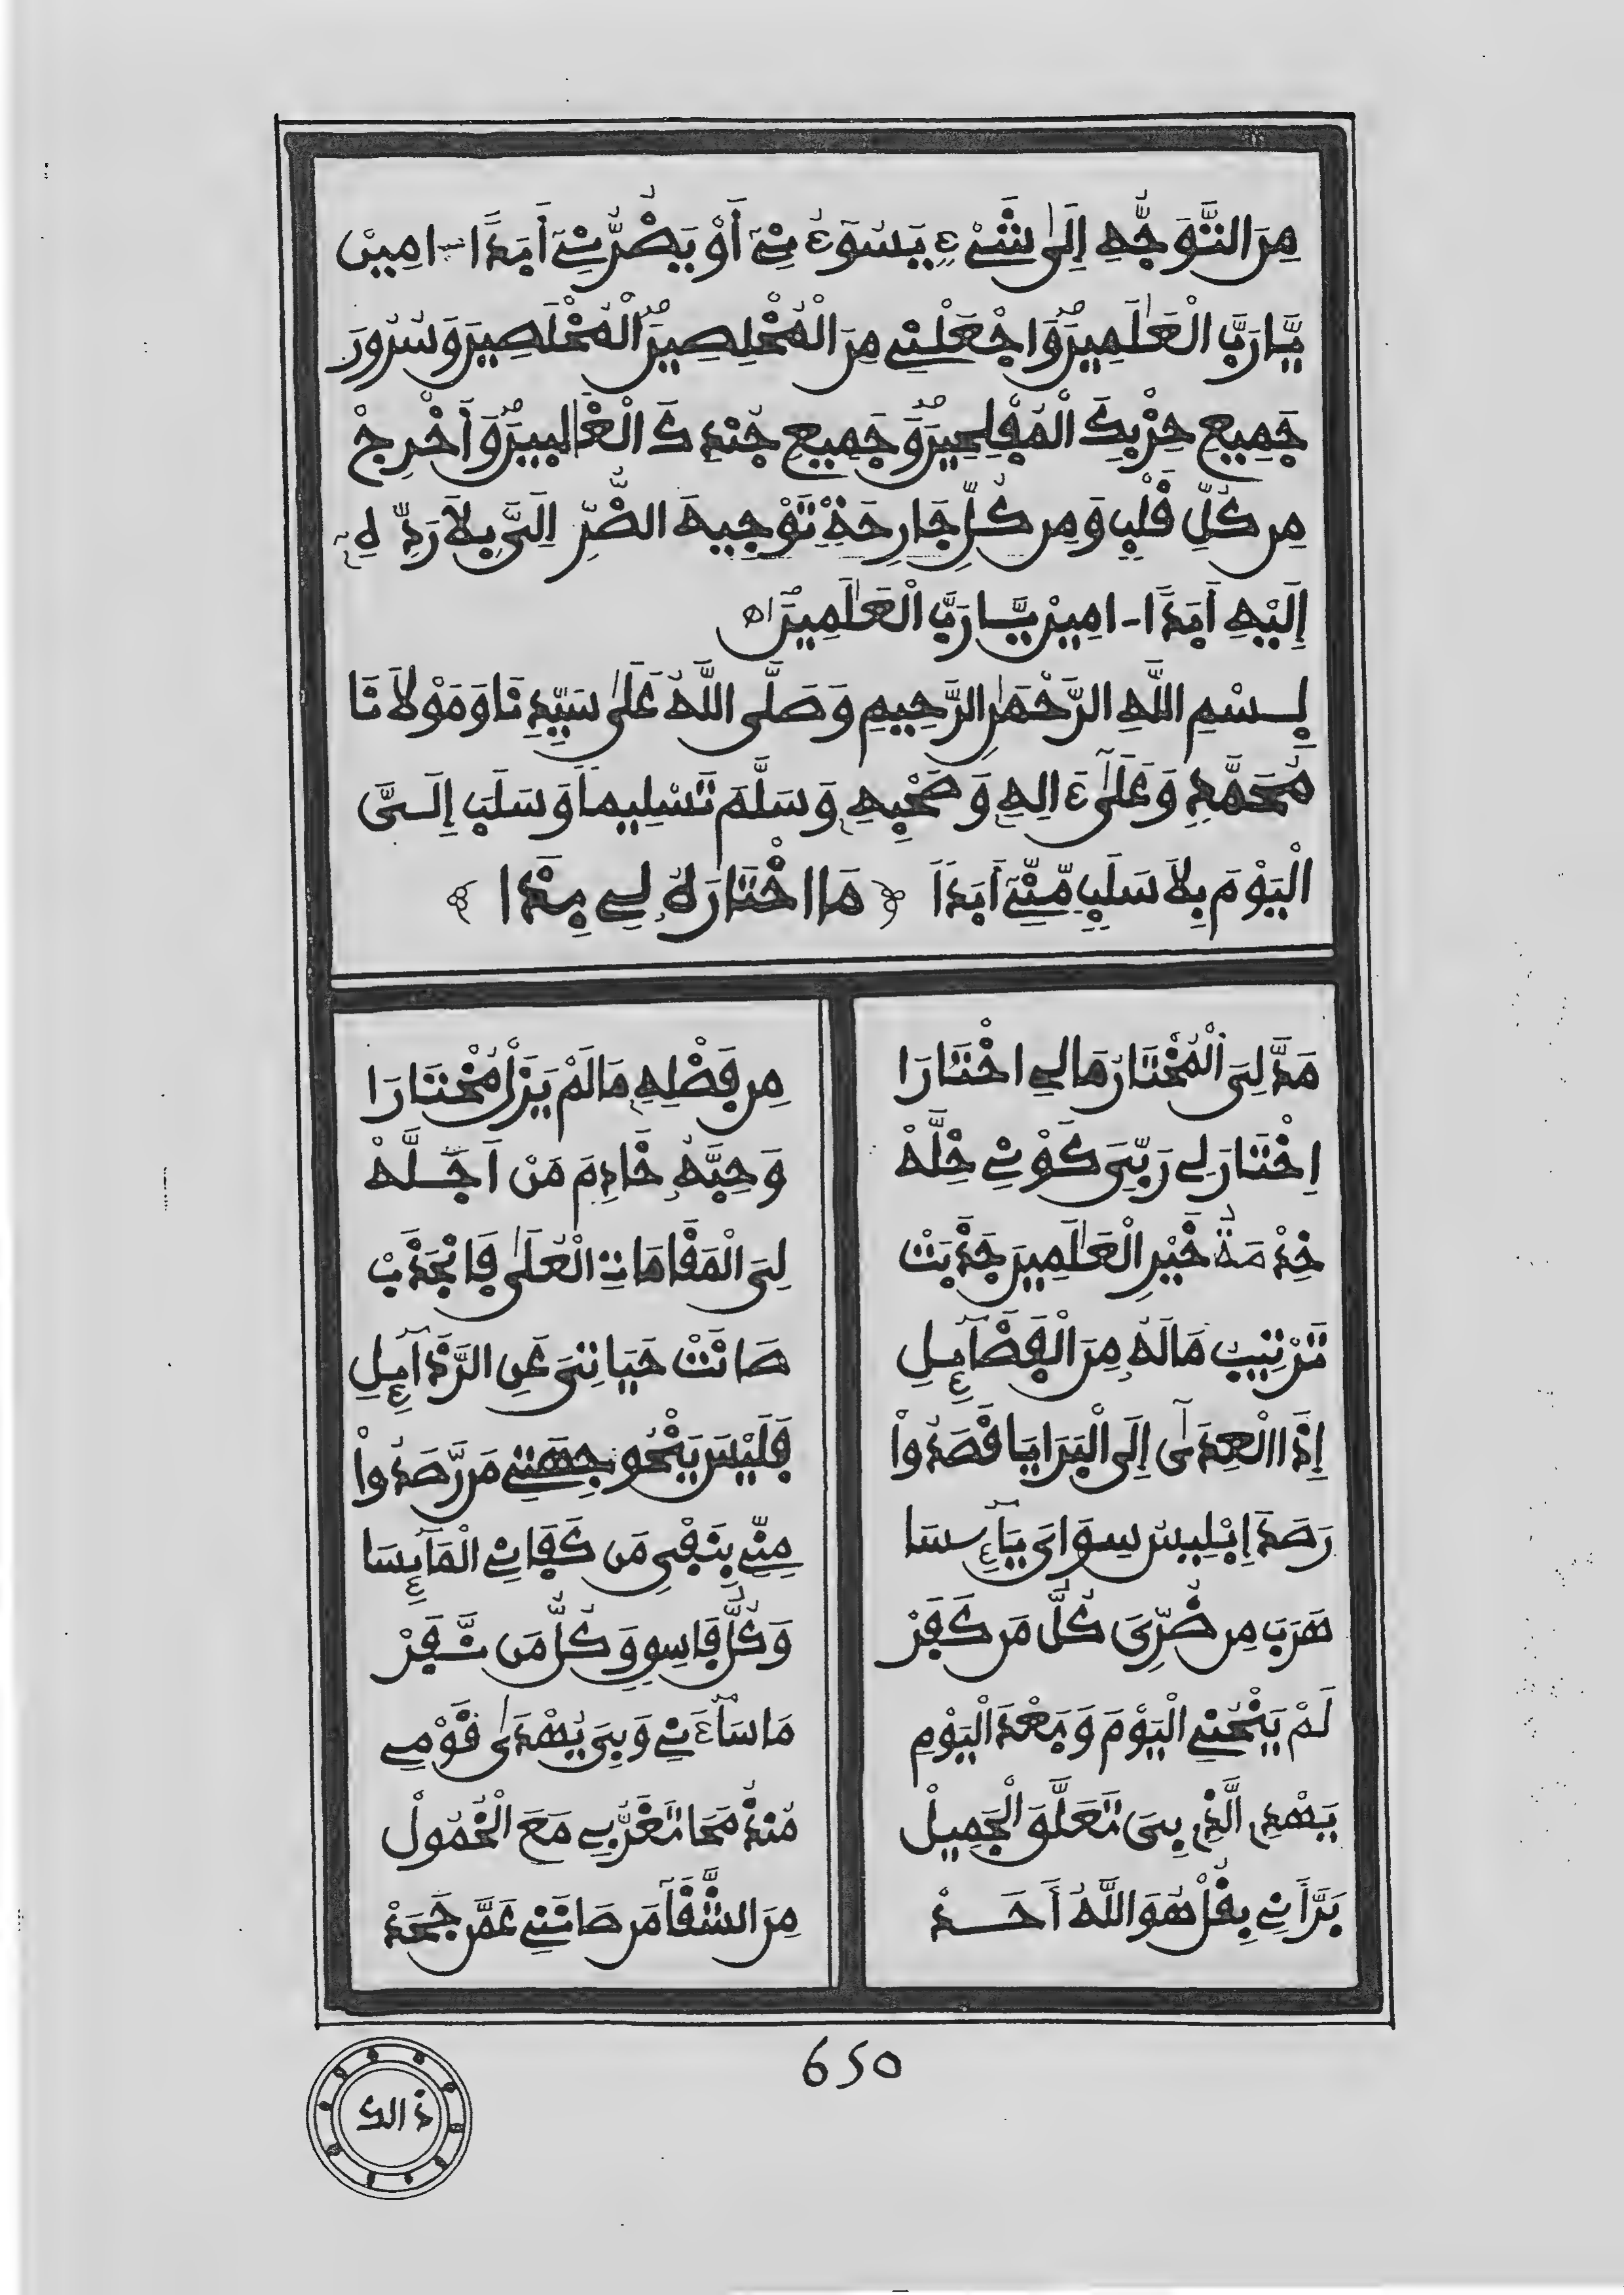 مِنَ التَّوَجُّهِ إِلَىٰ شَيْءٍ يَسُوءُنِي أَوْ يَضُرُّنِي أَبَدًا - امِينْ
يَّا رَبَّ الْعَٰلَمِينَ وَاجْعَلْنِي مِنَ الْمُخْلِصِينَ الْمُخْلَصِينَ وَسُرُورَ
جَمِيعِ حِزْبِكَ الْمُفْلِحِينَ وَجَمِيعِ جُنْدِكَ الْغَٰلِبِينَ وَأَخْرِجْ
مِن كُلِّ قَلْبٍ وَمِن كُلِّ جَارِحَةٍ تَوْجِيهَ الضُّرِّ إِلَيَّ بِلَا رَدٍّ لِهِ
إِلَيْهِ أَبَدًا - امِينْ يَّا رَبَّ الْعَٰلَمِينَ اه
بِسْمِ اللَّهِ الرَّحْمَٰنِ الرَّحِيمِ وَصَلَّى اللَّهُ عَلَىٰ سَيِّدِنَا وَمَوْلَانَا
مُحَمَّدٍ وَعَلَىٰ ءَالِهِ وَصَحْبِهِ وَسَلَّمَ تَسْلِيمًا وَسَلَبَ إِلَيَّ
الْيَوْمَ بِلَا سَلَبٍ مِّنِّي أَبَدًا ﴿ مَا اخْتَارَهُ لِي مِدًا ﴾
مَدَّ لِيَ الْمُخْتَارُ مَا لِي اخْتَارَا
مِن فَضْلِهِ مَا لَمْ يَزَلْ مُخْتَارَا
اِخْتَارَ لِي رَبِّيَ كَوْنِي خِلَّهْ
وَحِبَّهُ خَادِمَ مَنْ أَجَلَّهْ
خِدْمَةُ خَيْرِ الْعَٰلَمِينَ جَذَبَتْ
لِيَ الْمَقَامَاتِ الْعُلَىٰ فَانْجَذَبْ
تَرْتِيبُ مَا لَهُ مِنَ الْفَضَائِلِ
صَانَتْ حَيَاتِيَ عَنِ الرَّذَائِلِ
إِذَا الْعِدَىٰ إِلَى الْبَرَايَا قَصَدُواْ
فَلَيْسَ يَنْحُو جِهَتِي مَن رَّصَدُواْ
رَصَدَ إِبْلِيسُ سِوَايَ يَائِسَا
مِنِّي بِنَفْيِ مَن كَفَانِي الْمَائِسَا
هَرَبَ مِن ضُرِّيَ كُلُّ مَن كَفَرْ
وَكُلُّ فَاسِقٍ وَكُلُّ مَن نَّفَرْ
لَمْ يَنْحُنِي الْيَوْمَ وَبَعْدَ الْيَوْمِ
مَا سَاءَنِي وَبِيَ يُهْدَىٰ قَوْمِي
يَهْدِي الَّذِي بِيَ تَعَلَّقَ الْجَمِيلْ
مُنْذُ مَحَا تَغَرُّبِي مَعَ الْخُمُولْ
بَرَّأَنِي بِقُلْ هُوَ اللَّهُ أَحَدْ
مِنَ الشَّقَا مَن صَانَنِي عَمَّن جَحَدْ
650